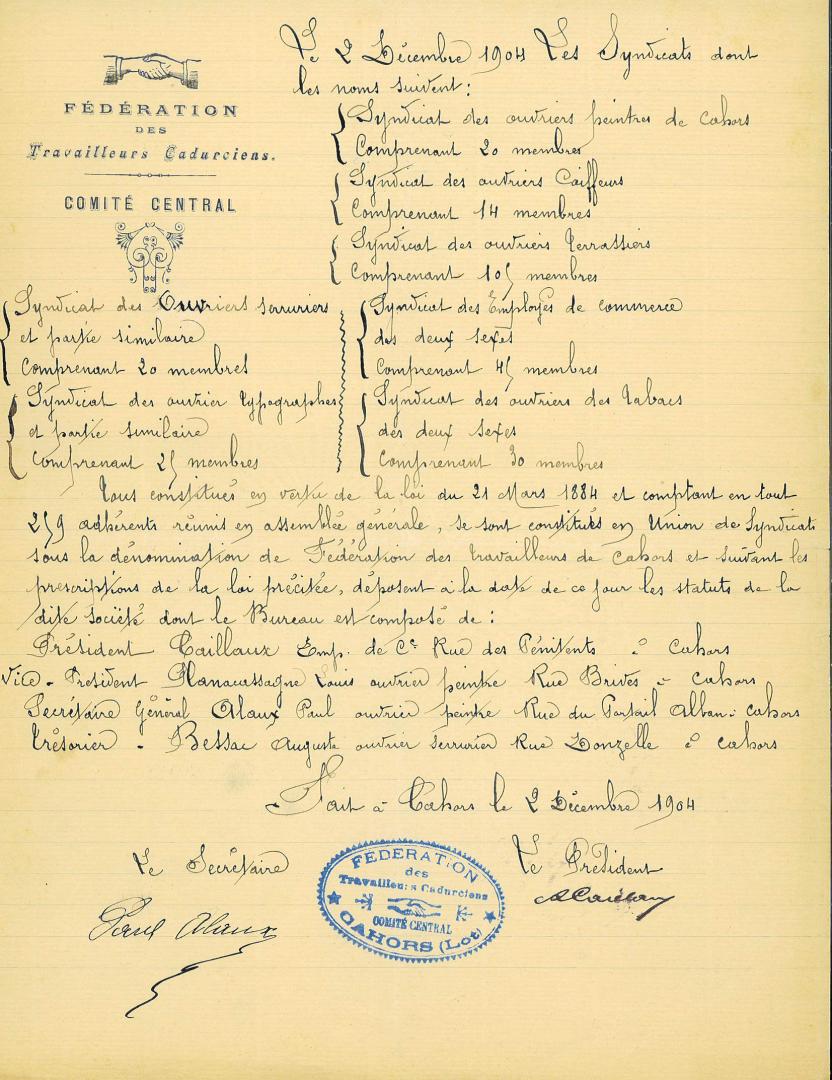 FÉDÉRATION
DES
Travailleurs Cadurciens.
COMITÉ CENTRAL
Le 2 Décembre 1904 Les Syndicats dont
les noms suivent:
Syndicat des ouvriers peintres de cahors
Comprenant 20 membres
Syndicat des ouvriers Coiffeurs
Comprenant 14 membres
Syndicat des ouvriers terrassiers
Comprenant 105 membres
Syndicat des Ouvriers serruriers
et partie similaire
Comprenant 20 membres
Syndicat des ouvrier typographes
et partie similaire
Comprenant 25 membres
Syndicat des Employés de commerce
des deux sexes
Comprenant 45 membres
Syndicat des ouvriers des tabacs
des deux sexes
Comprenant 30 membres
Tous constitués en vertu de la loi du 21 Mars 1884 et comptant en tout
259 adhérents réunis en assemblée générale, se sont constitués en Union de Syndicats
sous la dénomination de Fédération des travailleurs de cahors et suivant les
prescriptions de la loi précitée, déposent à la date de ce jour les statuts de la
dite société dont le Bureau est composé de:
Président Caillaux Emp. de Ce Rue des Pénitents à cahors
Vice-President Manacassagne Louis ouvrier peintre Rue Brives à cahors
Secrétaire Général Alaux Paul ouvrier peintre Rue du Portail Alban à cahors
trésorier - Bessac Auguste ouvrier serrurier Rue Donzelle à cahors
Fait à Cahors le 2 Décembre 1904
Le Secrétaire
Le Président
Paul Alaux
FÉDÉRATION
des
Travailleurs Cadurciens
COMITÉ CENTRAL
CAHORS (Lot)